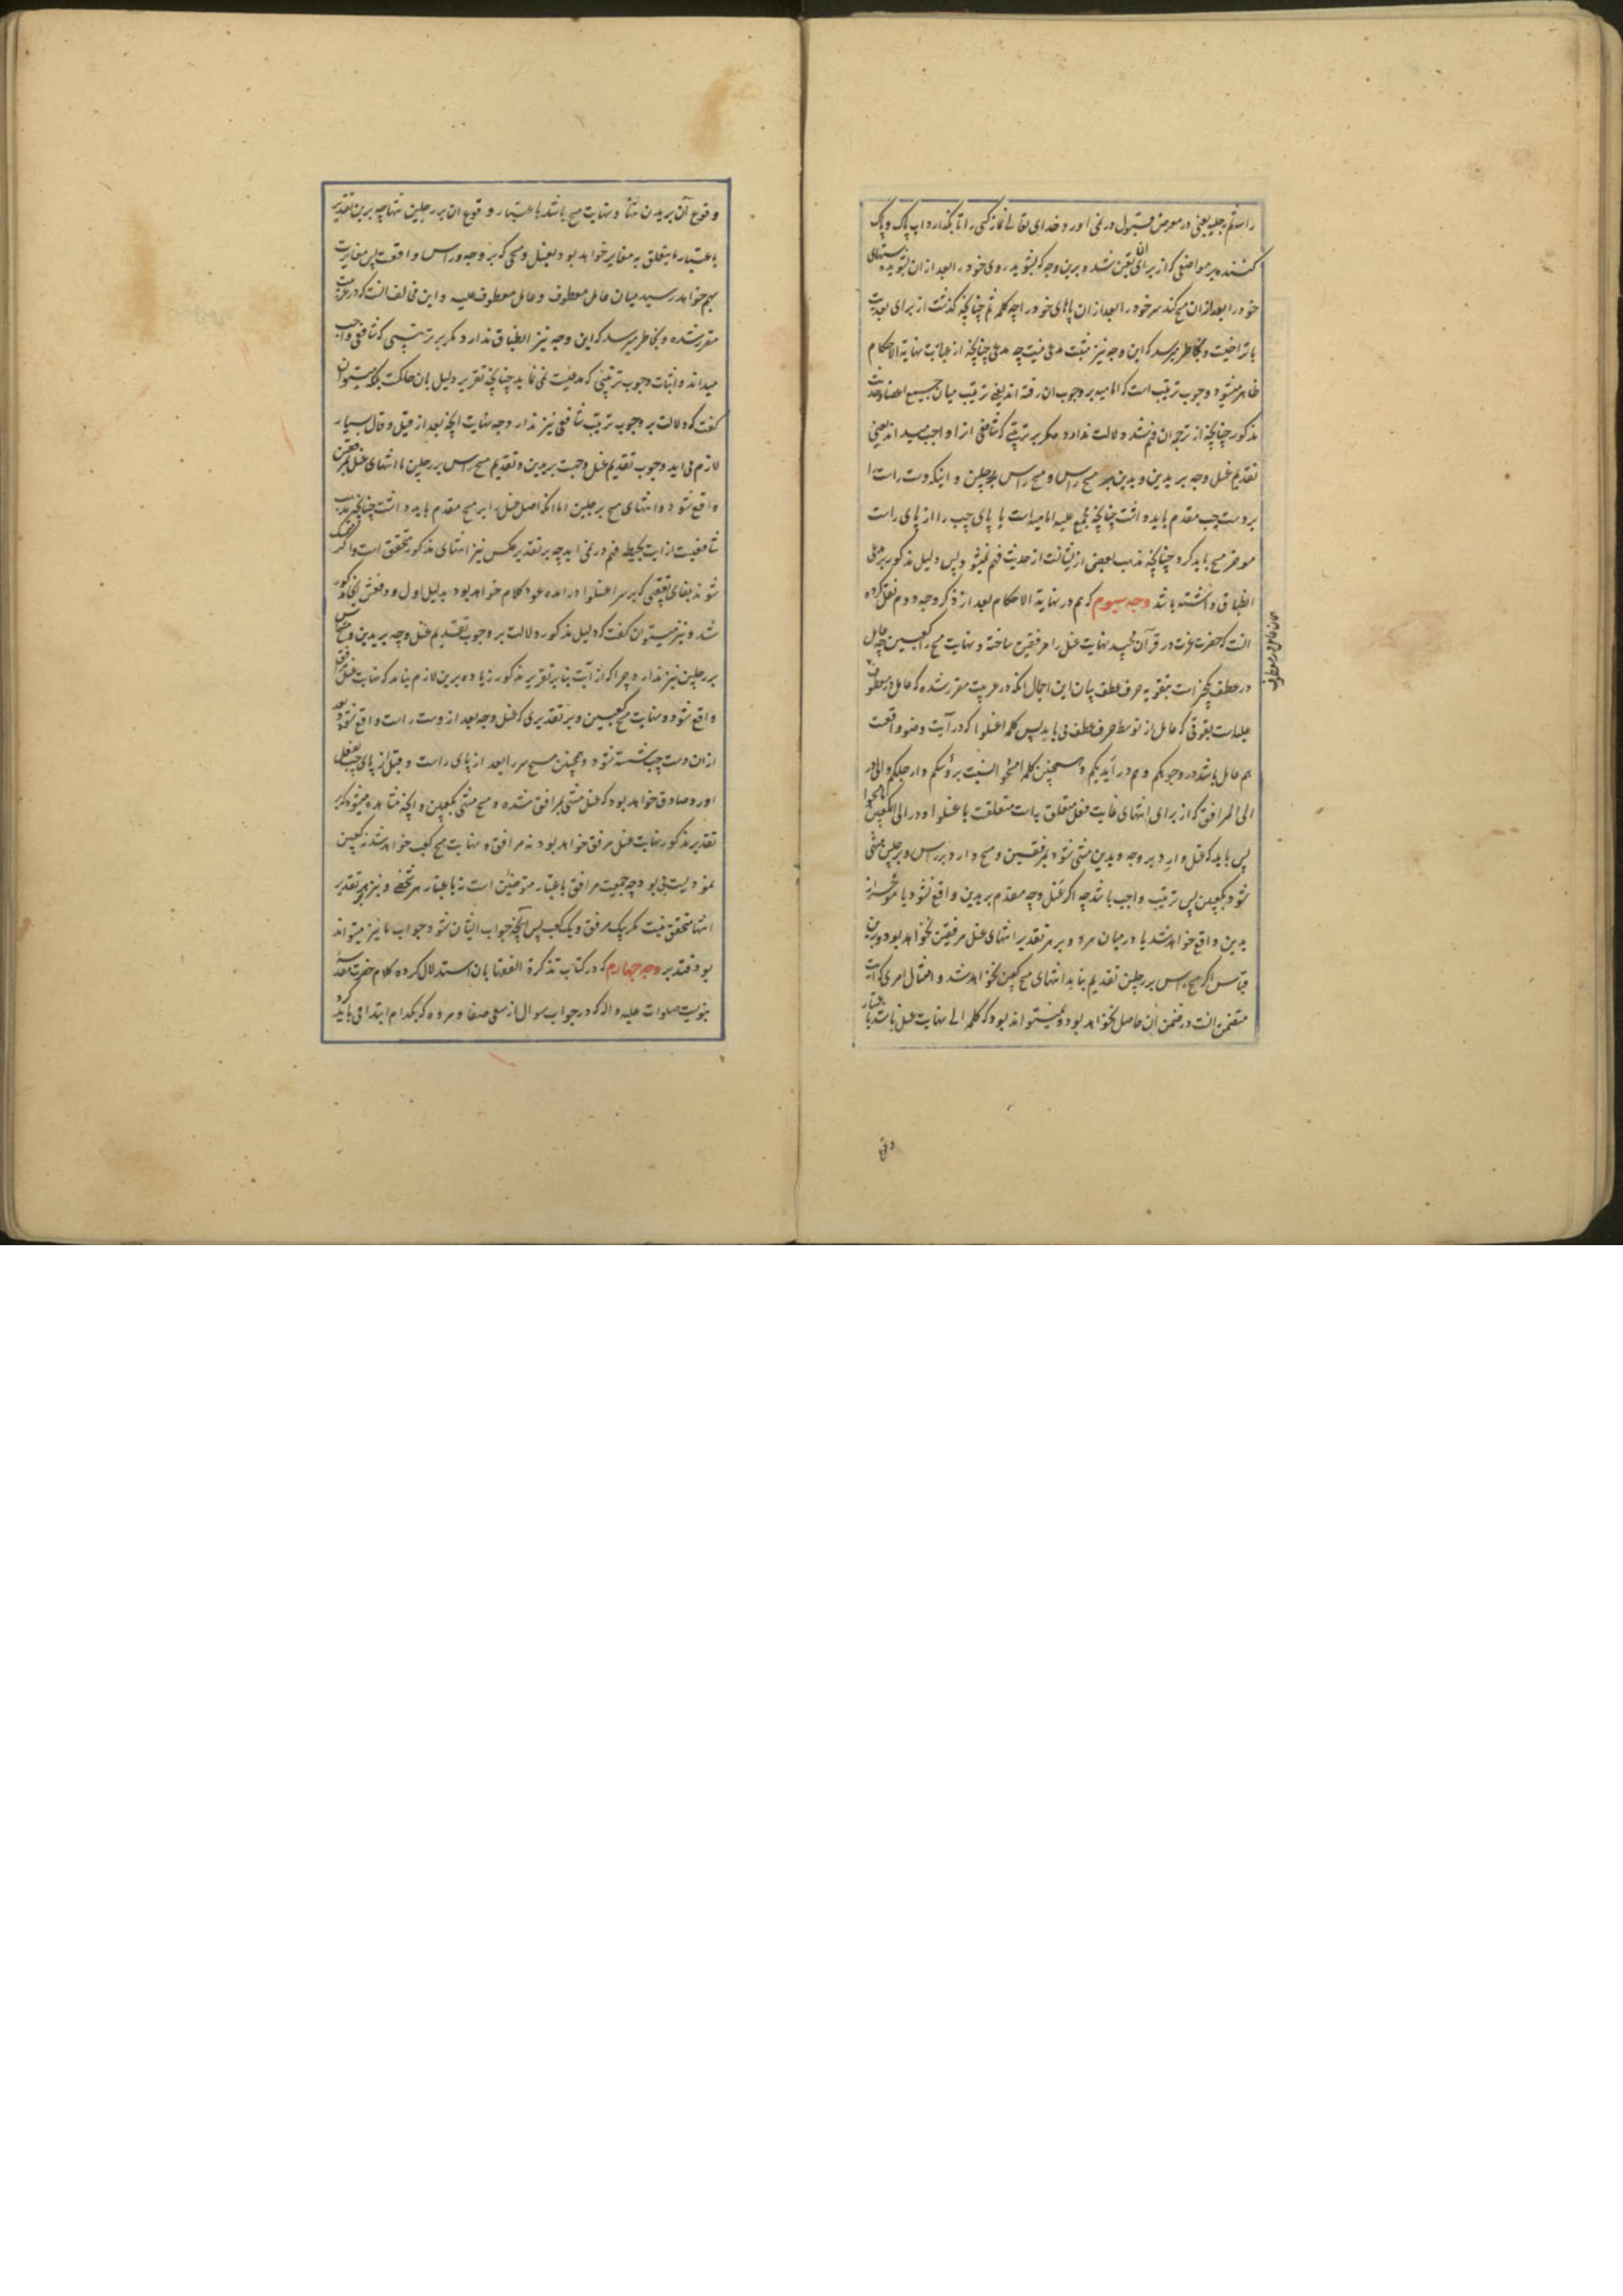 را ثم رجلیه یعنی در معرض قبول در نمی آورد خدای تعالی نماز کسی را تا بگذارد آب پاک و پاک
کننده بر مواضعی که از برای آن تعین شده برین وجه که بشوید روی خود را بعد از آن بشوید دستهای
خود را بعد از آن مسح کند سر خود را بعد از آن پاهای خود را چه کلمه ثم چنانچه گذشت از برای بعدیت
با تراخیست و بخاطر میرسد که این وجه نیز مثبت مدعی نیست چه مدعی چنانچه از عبارت نهایة الاحکام
ظاهر میشود وجوب ترتیب است که امامیه بر وجوب آن رفته اند یعنی ترتیب میان جمیع اعضا و حدیث
مذکور چنانچه از ترجمه آن فهم شد دلالت ندارد مگر بر ترتیبی که شافعی آنرا واجب میداند یعنی
تقدیم غسل وجه بر یدین و یدین بر مسح راس و مسح راس بر رجلین و اینکه دست راست را
بر دست چپ مقدم باید داشت چنانچه مجمع علیه امامیه است یا پای چپ را از پای راست
موخر مسح باید کرد چنانچه مذهب بعضی از ایشانست از حدیث فهم نمیشود پس دلیل مذکور بر مدعی
انطباق نداشته باشد وجه سیوم که هم در نهایة الاحکام بعد از ذکر وجه دوم نقل کرده
آنست که حضرت عزت در قرآن مجید نهایت غسل را مرفقین ساخته و نهایت مسح را کعبین چه عامل
در عطف یکچیز است بتقویه حرف عطف بیان این اجمال آنکه در عربیت مقرر شده که عامل در معطوف
علیه است بقوتی که عامل از توسط حرف عطف می یابد پس کلمه اغسلوا که در آیت وضو واقعست
هم عامل باشد در وجوهکم و هم در ایدیکم و همچنین کلمه امسحوا نسبت برؤسکم و ارجلکم و الی در
الی المرافق که از برای انتهای غایت فعل متعلق به است متعلقست با غسلوا و در الی الکعبین با مسحوا
پس باید که غسل وارد بر وجه و یدین منتهی شود بمرفقین و مسح وارد بر راس و رجلین منتهی
شود بکعبین پس ترتیب واجب باشد چه اگر غسل وجه مقدم بر یدین واقع نشود یا موخر از
یدین واقع خواهد شد یا در میان هر دو و بر هر تقدیر انتهای غسل مرفقین نخواهد بود و برین
قیاس اگر مسح راس بر رجلین تقدیم نیابد انتهای مسح کعبین نخواهد شد و امتثال امری که آیت
متضمن آنست در ضمن آن حاصل نخواهد بود و نمیتواند بود که کلمه الی نهایت غسل باشد باعتبار
وقوع آن بر یدین تنها و نهایت مسح باشد باعتبار وقوع آن بر رجلین تنها چه برین تقدیر
باعتبار ما یتعلق به مغایر خواهد بود بغسل و مسحی که بر وجه و راس واقعست پس مغایرت
بهم خواهد رسید میان عامل معطوف و عامل معطوف علیه و این مخالف آنست که در عربیت
مقرر شده و بخاطر میرسد که این وجه نیز انطباق ندارد مگر بر ترتیبی که شافعی واجب
میداند و اثبات وجوب ترتیبی که مدعیست نمی نماید چنانچه تقریر دلیل بآن حاکمست بلکه میتوان
گفت که دلالت بر وجوب ترتیب شافعی نیز ندارد چه نهایت آنچه بعد از قیل و قال بسیار
لازم می آید وجوب تقدیم غسل وجهست بر یدین و تقدیم مسح راس بر رجلین تا انتهای غسل بمرفقین
واقع شود و انتهای مسح برجلین اما آنکه اصل غسل را بر مسح مقدم باید داشت چنانچه مذهب
شافعیست از آیت بحیطه فهم در نمی آید چه بر تقدیر عکس نیز انتهای مذکور متحقق است و اگر متمسک
شوند بفای تعقیبی که بر سر اغسلوا درآمده عود کلام خواهد بود بدلیل اول و دفعش بخامذکور
شد و نیز میتوان گفت که دلیل مذکور دلالت بر وجوب تقدیم غسل وجه بر یدین و مسح راس
بر رجلین نیز ندارد چرا که از آیت بنابر تقریر مذکور زیاده برین لازم نیامد که نهایت غسل مرفق
واقع شود و نهایت مسح کعبین و بر تقدیری که غسل وجه بعد از دست راست واقع شود و بعد
از آن دست چپ شسته شود و همچنین مسح سر را بعد از پای راست و قبل از پای چپ بفعل
آورد صادق خواهد بود که غسل منتهی بمرافق شده و مسح منتهی بکعبین و آنچه مشاهده میشود که بر
تقدیر مذکور نهایت غسل مرفق خواهد بود نه مرافق و نهایت مسح کعب خواهد شد نه کعبین
نمودیست بی بود چه جمعیت مرافق باعتبار متوضئین است نه باعتبار هر شخصی و نیز بهر تقدیر
انتها متحقق نیست مگر بیک مرفق و یک کعب پس آنچه جواب ایشان شود جواب ما نیز میتواند
بود فتدبر وجه چهارم که در کتاب تذکرة الفقها بآن استدلال کرده کلام حضرت مقدسه
نبویست صلوات علیه و اله که در جواب سوال از سعی صفا و مروه که بکدام ابتدا می باید کرد